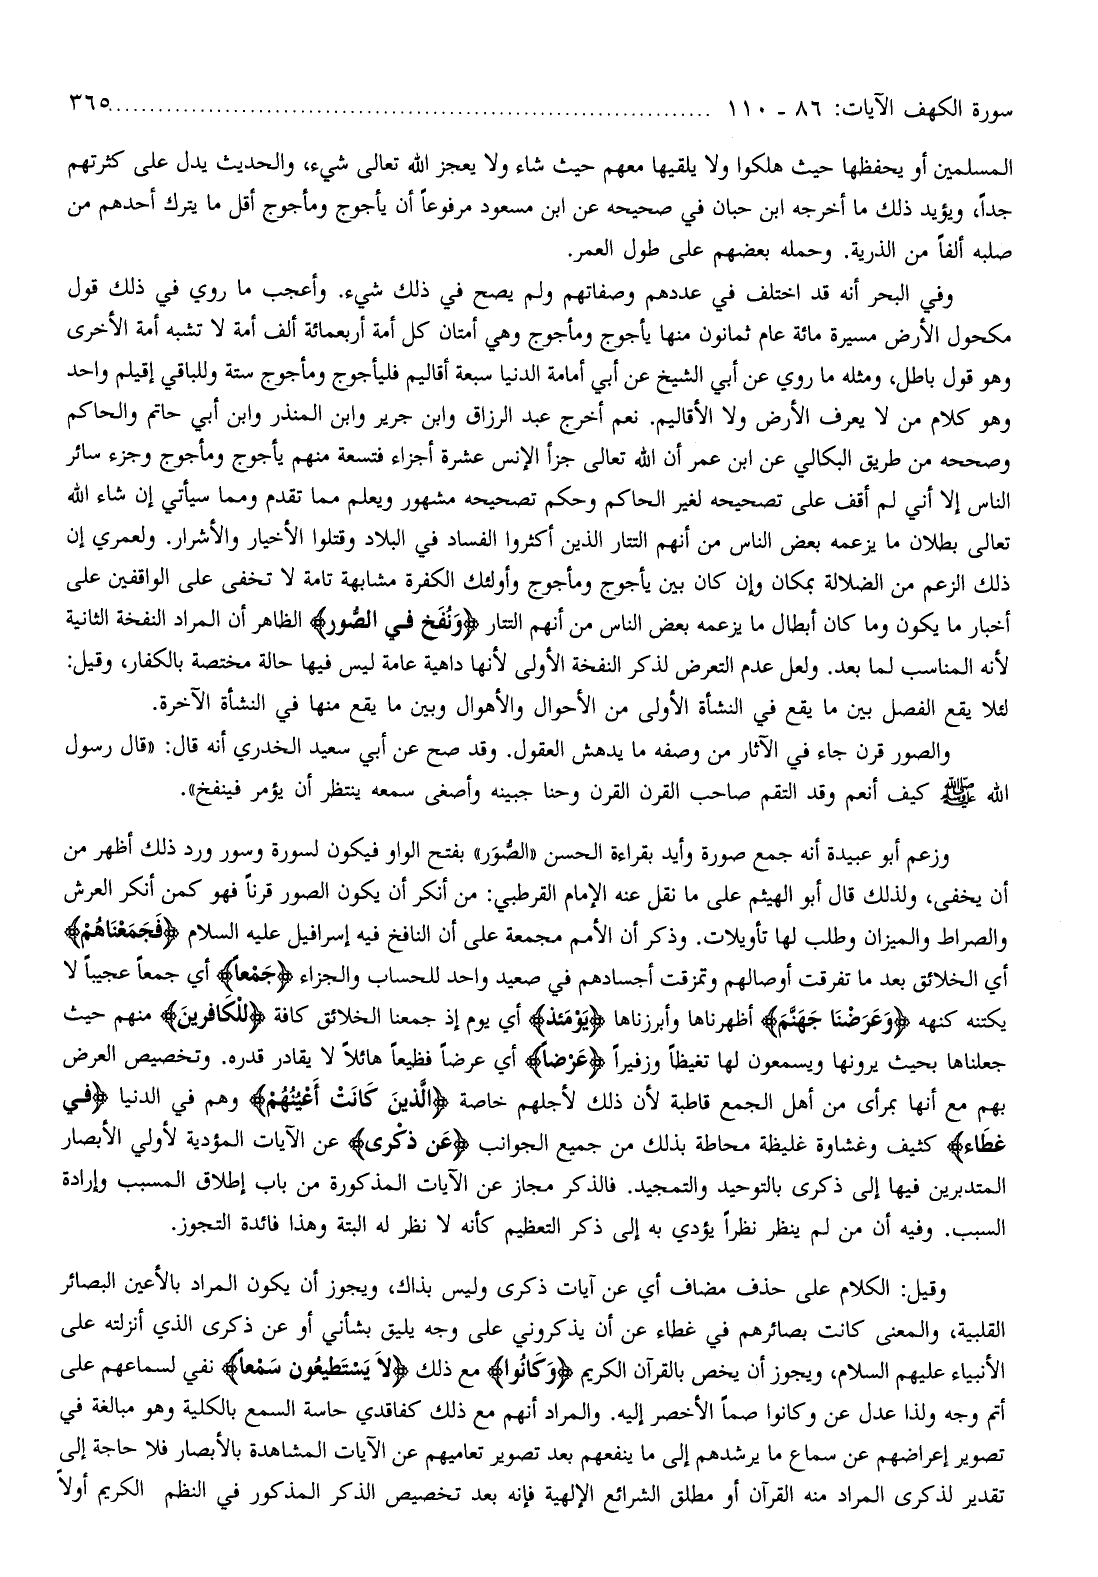 سورة الكهف الآيات: ٨٦ - ١١٠ ........................................ ٣٦٥
المسلمين أو يحفظها حيث هلكوا ولا يلقيها معهم حيث شاء ولا يعجز الله تعالى شيء، والحديث يدل على كثرتهم
جداً، ويؤيد ذلك ما أخرجه ابن حبان في صحيحه عن ابن مسعود مرفوعاً أن يأجوج ومأجوج أقل ما يترك أحدهم من
صلبه ألفاً من الذرية. وحمله بعضهم على طول العمر.
وفي البحر أنه قد اختلف في عددهم وصفاتهم ولم يصح في ذلك شيء. وأعجب ما روي في ذلك قول
مكحول الأرض مسيرة مائة عام ثمانون منها يأجوج ومأجوج وهي أمتان كل أمة أربعمائة ألف أمة لا تشبه أمة الأخرى
وهو قول باطل، ومثله ما روي عن أبي الشيخ عن أبي أمامة الدنيا سبعة أقاليم فليأجوج ومأجوج ستة وللباقي إقيلم واحد
وهو كلام من لا يعرف الأرض ولا الأقاليم. نعم أخرج عبد الرزاق وابن جرير وابن المنذر وابن أبي حاتم والحاكم
وصححه من طريق البكالي عن ابن عمر أن الله تعالى جزأ الإنس عشرة أجزاء فتسعة منهم يأجوج ومأجوج وجزء سائر
الناس إلا أني لم أقف على تصحيحه لغير الحاكم وحكم تصحيحه مشهور ويعلم مما تقدم ومما سيأتي إن شاء الله
تعالى بطلان ما يزعمه بعض الناس من أنهم التتار الذين أكثروا الفساد في البلاد وقتلوا الأخيار والأشرار. ولعمري إن
ذلك الزعم من الضلالة بمكان وإن كان بين يأجوج ومأجوج وأولئك الكفرة مشابهة تامة لا تخفى على الواقفين على
أخبار ما يكون وما كان أبطال ما يزعمه بعض الناس من أنهم التتار ﴿وَنُفَخ في الصُّور﴾ الظاهر أن المراد النفخة الثانية
لأنه المناسب لما بعد. ولعل عدم التعرض لذكر النفخة الأولى لأنها داهية عامة ليس فيها حالة مختصة بالكفار، وقيل:
لئلا يقع الفصل بين ما يقع في النشأة الأولى من الأحوال والأهوال وبين ما يقع منها في النشأة الآخرة.
والصور قرن جاء في الآثار من وصفه ما يدهش العقول. وقد صح عن أبي سعيد الخدري أنه قال: «قال رسول
الله ﷺ كيف أنعم وقد التقم صاحب القرن القرن وحنا جبينه وأصغى سمعه ينتظر أن يؤمر فينفخ».
وزعم أبو عبيدة أنه جمع صورة وأيد بقراءة الحسن «الصُّوَر» بفتح الواو فيكون لسورة وسور ورد ذلك أظهر من
أن يخفى، ولذلك قال أبو الهيثم على ما نقل عنه الإمام القرطبي: من أنكر أن يكون الصور قرناً فهو كمن أنكر العرش
والصراط والميزان وطلب لها تأويلات. وذكر أن الأمم مجمعة على أن النافخ فيه إسرافيل عليه السلام ﴿فَجَمَعْنَاهُمْ﴾
أي الخلائق بعد ما تفرقت أوصالهم وتمزقت أجسادهم في صعيد واحد للحساب والجزاء ﴿جَمْعاً﴾ أي جمعاً عجيباً لا
يكتنه كنهه ﴿وَعَرَضْنَا جَهَنَّمَ﴾ أظهرناها وأبرزناها ﴿يَوْمَئذ﴾ أي يوم إذ جمعنا الخلائق كافة ﴿للْكَافرينَ﴾ منهم حيث
جعلناها بحيث يرونها ويسمعون لها تغيظاً وزفيراً ﴿عَرْضاً﴾ أي عرضاً فظيعاً هائلاً لا يقادر قدره. وتخصيص العرض
بهم مع أنها بمرأى من أهل الجمع قاطبة لأن ذلك لأجلهم خاصة ﴿الَّذينَ كَانَتْ أَعْيُنُهُمْ﴾ وهم في الدنيا ﴿في
غطَاء﴾ كثيف وغشاوة غليظة محاطة بذلك من جميع الجوانب ﴿عَن ذكْرى﴾ عن الآيات المؤدية لأولي الأبصار
المتدبرين فيها إلى ذكرى بالتوحيد والتمجيد. فالذكر مجاز عن الآيات المذكورة من باب إطلاق المسبب وإرادة
السبب. وفيه أن من لم ينظر نظراً يؤدي به إلى ذكر التعظيم كأنه لا نظر له البتة وهذا فائدة التجوز.
وقيل: الكلام على حذف مضاف أي عن آيات ذكرى وليس بذاك، ويجوز أن يكون المراد بالأعين البصائر
القلبية، والمعنى كانت بصائرهم في غطاء عن أن يذكروني على وجه يليق بشأني أو عن ذكرى الذي أنزلته على
الأنبياء عليهم السلام، ويجوز أن يخص بالقرآن الكريم ﴿وَكَانُوا﴾ مع ذلك ﴿لاَ يَسْتَطيعُون سَمْعاً﴾ نفي لسماعهم على
أتم وجه ولذا عدل عن وكانوا صماً الأخصر إليه. والمراد أنهم مع ذلك كفاقدي حاسة السمع بالكلية وهو مبالغة في
تصوير إعراضهم عن سماع ما يرشدهم إلى ما ينفعهم بعد تصوير تعاميهم عن الآيات المشاهدة بالأبصار فلا حاجة إلى
تقدير لذكرى المراد منه القرآن أو مطلق الشرائع الإلهية فإنه بعد تخصيص الذكر المذكور في النظم الكريم أولاً